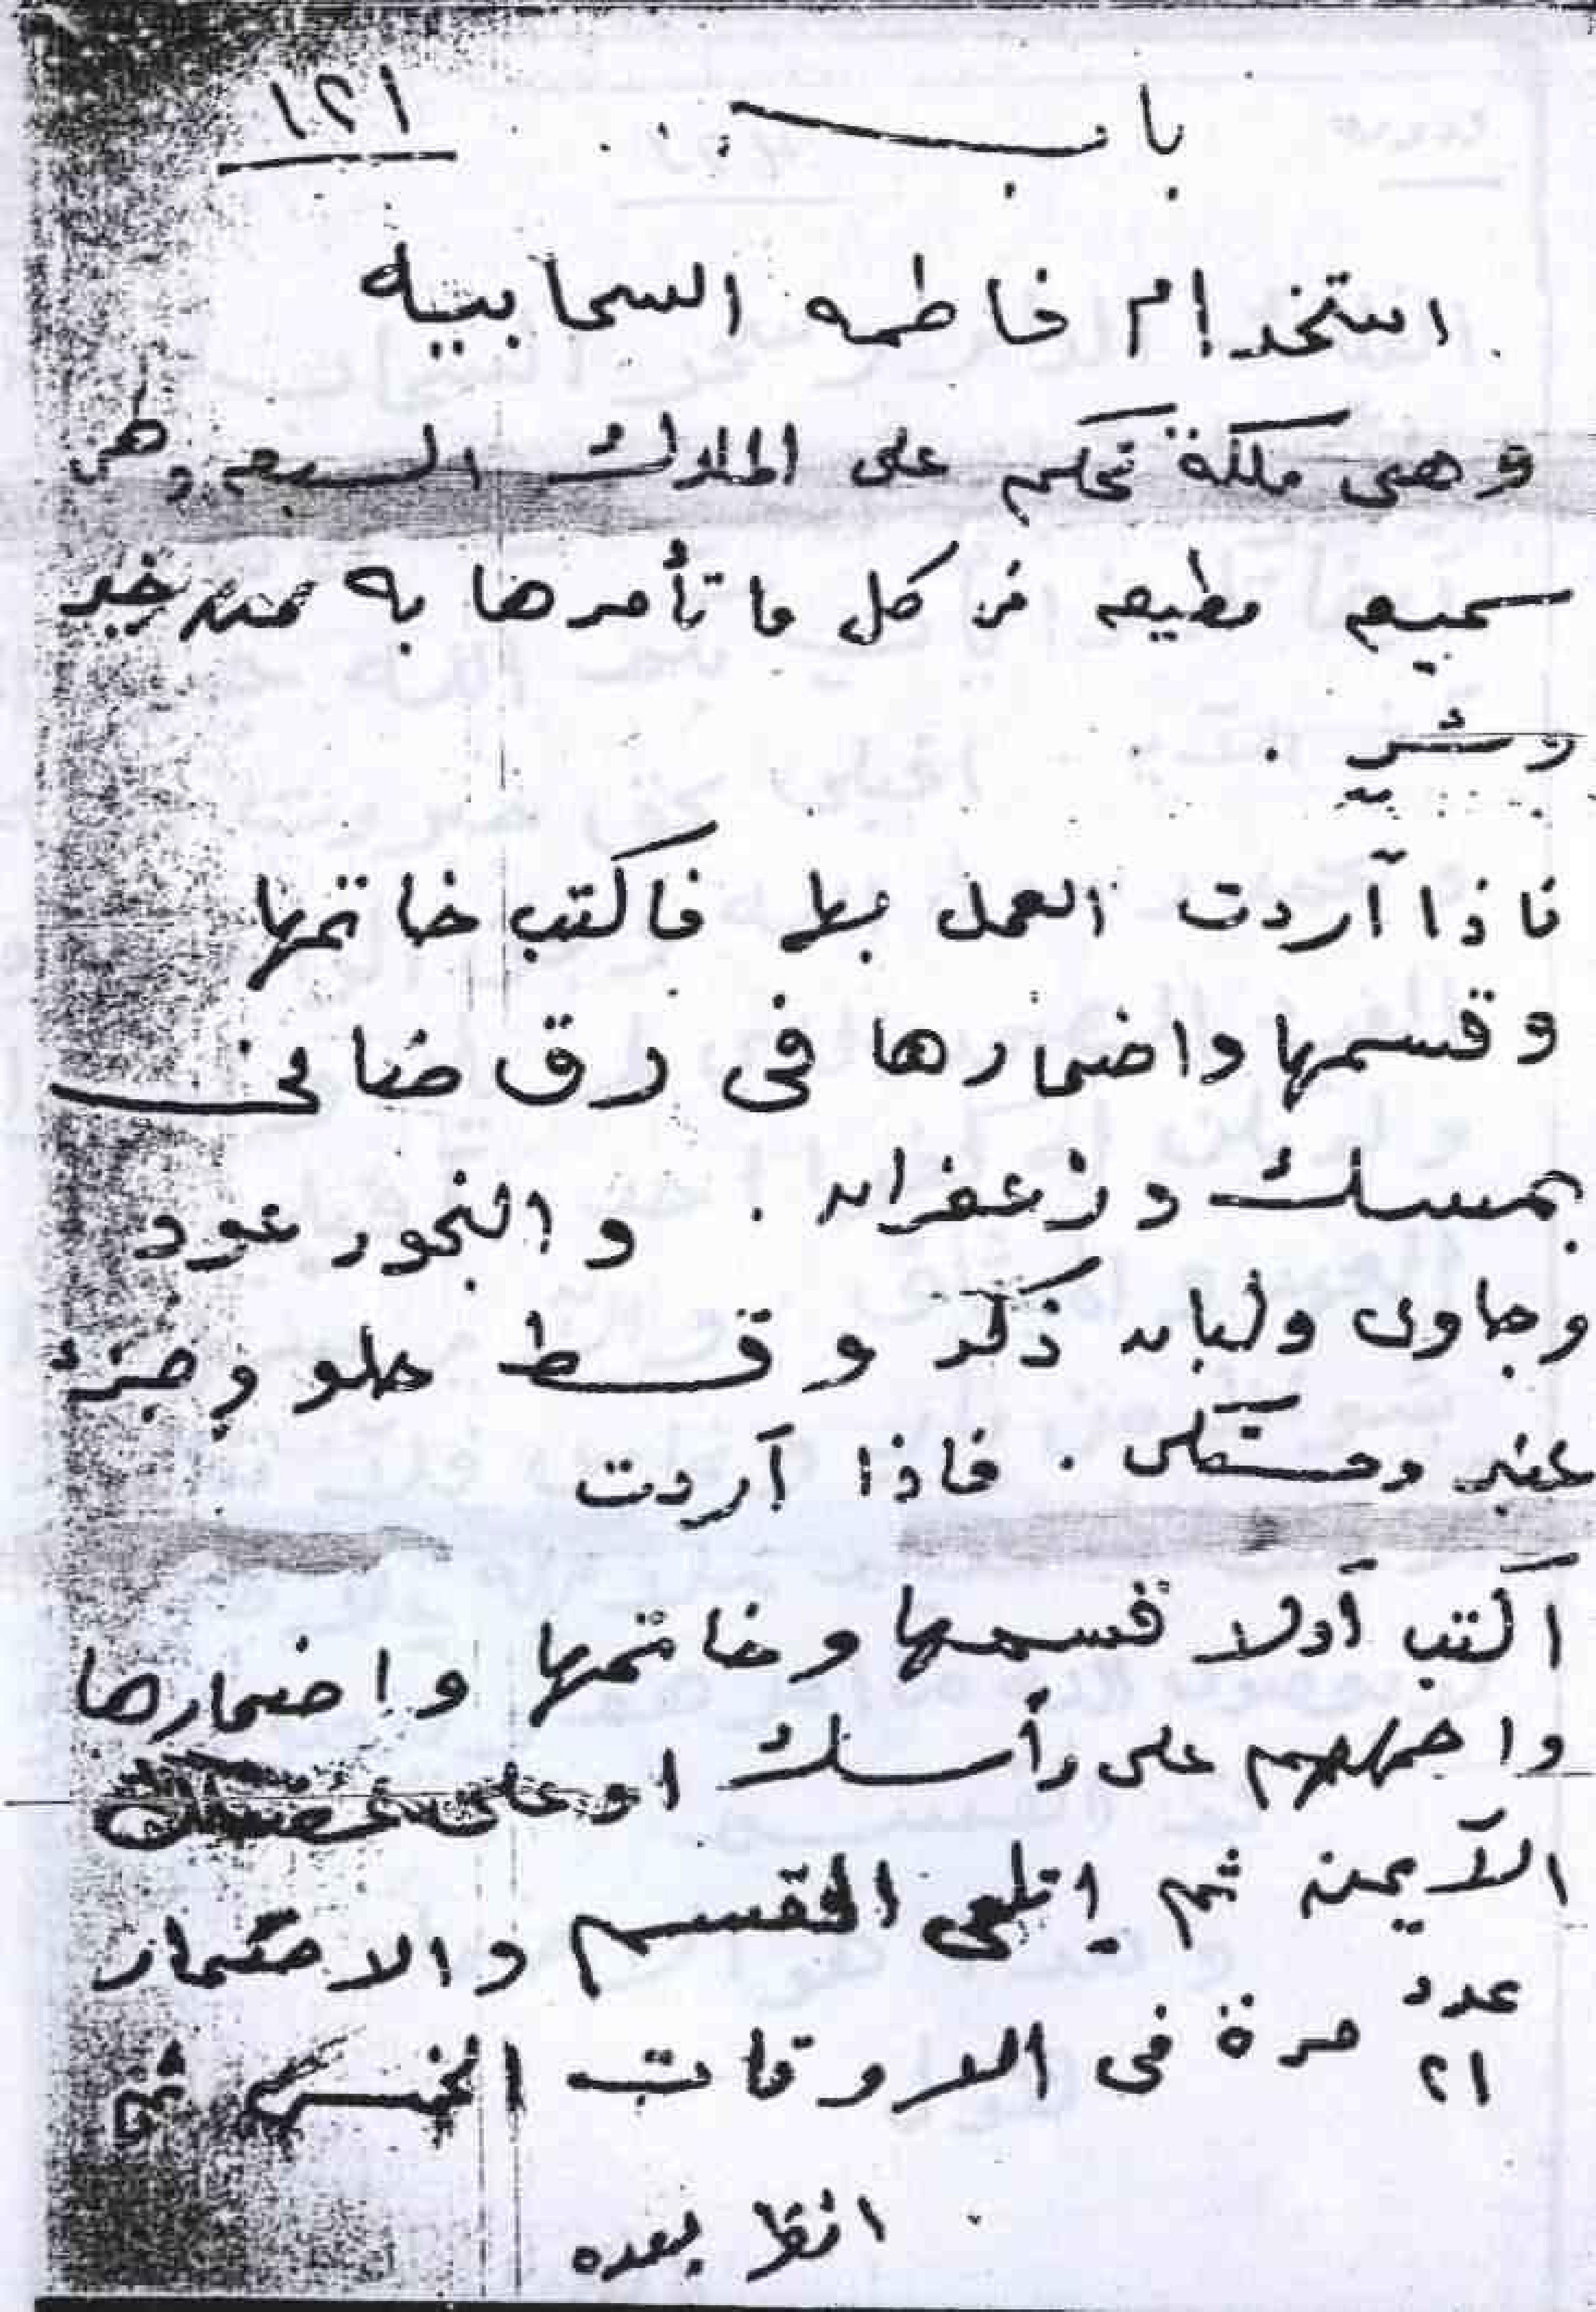 باب
١٢١
استخدام فاطمه السحابيه
وهى ملكة تحكم على الملوك السبعه وهى
سميعه مطيعه فى كل ما تأمرها به من خير
وشر .
فاذا أردت العمل بها فاكتب خاتمها
وقسمها واضمارها فى رق ضانى
بمسك وزعفران . والبخور عود
وجاوى ولبان ذكر وقسط حلو
عنبر ومستكى . فاذا أردت
اكتب أولا قسمها وخاتمها واضمارها
واحملهم على رأسك او على
الأيمن ثم اتلى القسم والاضمار
عدد
٢١ مرة فى الاوقات الخمس ثم
انظر بعده